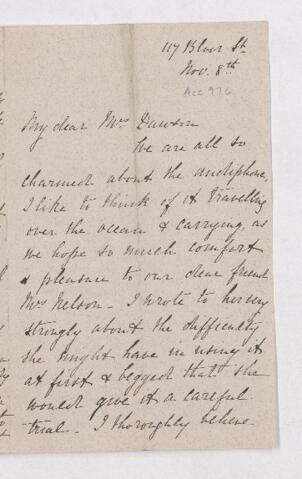 117 Bloor St
Nov. 8th
Acc 976
My dear Mrs Dawson
We are all so
charmed about the audiphone,
I like to think of it travelling
over the ocean & carrying, as
we hope so much comfort
& pleasure to our dear friend
Mrs Nelson - I wrote to her very
strongly about the difficulty
she might have in using it
at first & begged that she
would give it a careful
trial - I thoroughly believe